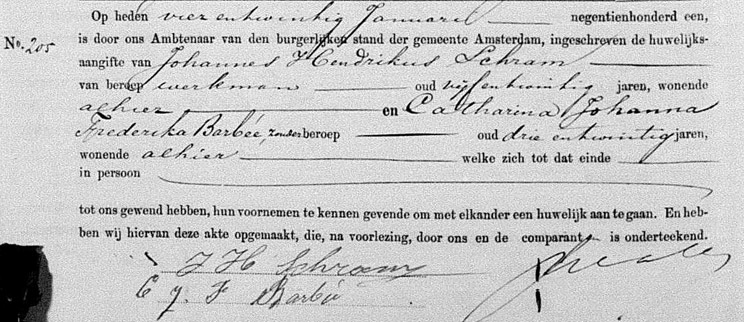 Op heden vier en twintig Januarij negentienhonderd een,
No. 205 is door ons Ambtenaar van den burgerlijken stand der gemeente Amsterdam, ingeschreven de huwelijks-
aangifte van Johannes Hendrikus Schram
van beroep werkman oud vijf en twintig jaren, wonende
alhier en Catharina Johanna
Frederika Barbée, zonder beroep oud drie en twintig jaren,
wonende alhier welke zich tot dat einde
in persoon
tot ons gewend hebben, hun voornemen te kennen gevende om met elkander een huwelijk aan te gaan. En heb-
ben wij hiervan deze akte opgemaakt, die, na voorlezing, door ons en de comparant is onderteekend.
J H Schram
C J F Barbée